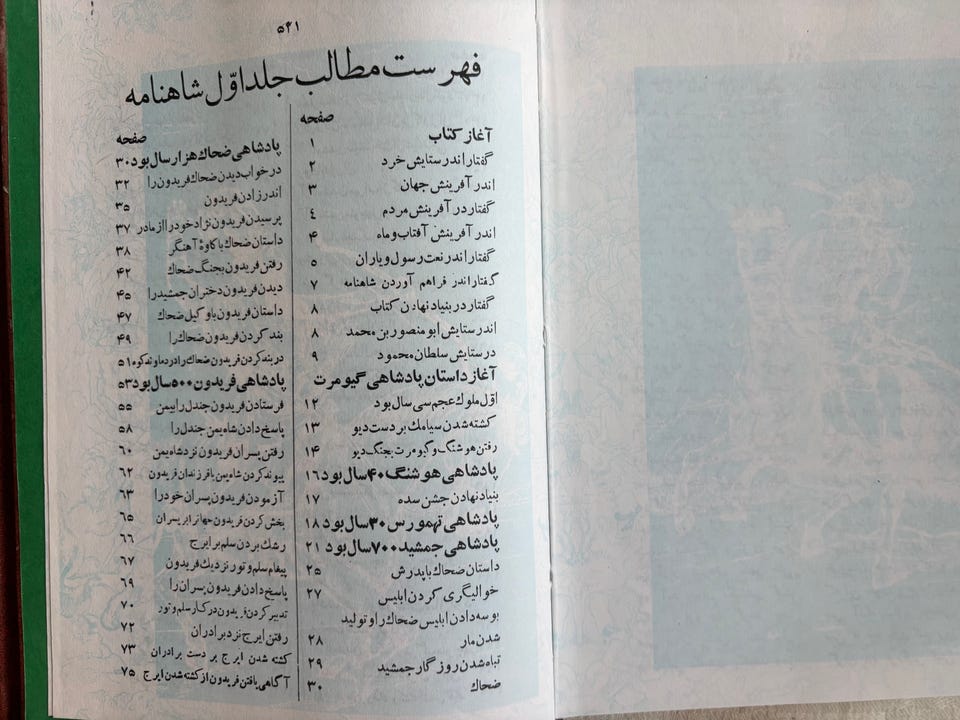 ۵۴۱
فهرست مطالب جلد اوّل شاهنامه
صفحه
آغاز کتاب ۱
گفتار اندر ستایش خرد ۲
اندر آفرینش جهان ۳
گفتار در آفرینش مردم ٤
اندر آفرینش آفتاب و ماه ۴
گفتار اندر نعت رسول و یاران ۵
گفتار اندر فراهم آوردن شاهنامه ۷
گفتار در بنیاد نهادن کتاب ۸
اندر ستایش ابو منصور بن محمد ۸
در ستایش سلطان محمود ۹
آغاز داستان پادشاهی گیومرت
اوّل ملوک عجم سی سال بود ۱۲
کشته شدن سیامک بر دست دیو ۱۳
رفتن هوشنگ و گیومرت بجنگ دیو ۱۴
پادشاهی هوشنگ ۴۰ سال بود ۱۶
بنیاد نهادن جشن سده ۱۷
پادشاهی تهمورس ۳۰ سال بود ۱۸
پادشاهی جمشید ۷۰۰ سال بود ۲۱
داستان ضحاک با پدرش ۲۵
خوالیگری کردن ابلیس ۲۷
بوسه دادن ابلیس ضحاک را و تولید
شدن مار ۲۸
تباه شدن روزگار جمشید ۲۹
ضحاک ۳۰
صفحه
پادشاهی ضحاک هزار سال بود ۳۰
در خواب دیدن ضحاک فریدون را ۳۲
اندر زادن فریدون ۳۵
پرسیدن فریدون نژاد خود را از مادر ۳۷
داستان ضحاک با کاوهٔ آهنگر ۳۸
رفتن فریدون بجنگ ضحاک ۴۲
دیدن فریدون دختران جمشید را ۴۵
داستان فریدون با وکیل ضحاک ۴۷
بند کردن فریدون ضحاک را ۴۹
در بند کردن فریدون ضحاک را در دماوند کوه ۵۱
پادشاهی فریدون ۵۰۰ سال بود ۵۳
فرستادن فریدون جندل را بیمن ۵۵
پاسخ دادن شاه یمن جندل را ۵۸
رفتن پسران فریدون نزد شاه یمن ۶۰
پیوند کردن شاه یمن با فرزندان فریدون ۶۲
آزمودن فریدون پسران خود را ۶۳
بخش کردن فریدون جهان را بر پسران ۶۵
رشک بردن سلم بر ایرج ۶۶
پیغام سلم و تور نزدیک فریدون ۶۷
پاسخ دادن فریدون پسران را ۶۹
تدبیر کردن فریدون در کار سلم و تور ۷۰
رفتن ایرج نزد برادران ۷۲
کشته شدن ایرج بر دست برادران ۷۳
آگاهی یافتن فریدون از کشته شدن ایرج ۷۵